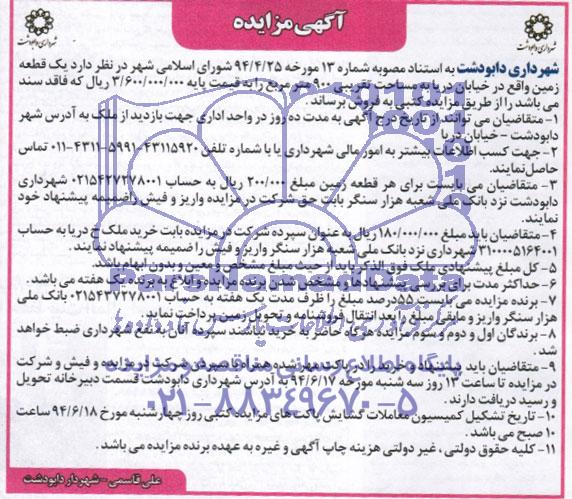 آگهی مزایده
شهرداری دابودشت
شهرداری دابودشت
شهرداری دابودشت به استناد مصوبه شماره ۱۳ مورخه ۹۴/۴/۲۵ شورای اسلامی شهر در نظر دارد یک قطعه
زمین واقع در خیابان دریا به مساحت تقریبی ۹۰۰ متر مربع را به قیمت پایه ۳/۶۰۰/۰۰۰/۰۰۰ ریال که فاقد سند
می باشد را از طریق مزایده کتبی به فروش برساند.
۱- متقاضیان می توانند از تاریخ درج آگهی به مدت ده روز در واحد اداری جهت بازدید از ملک به آدرس شهر
دابودشت - خیابان دریا
۲- جهت کسب اطلاعات بیشتر به امور مالی شهرداری یا با شماره تلفن ۴۳۱۱۵۹۲۰-۵۹۹۱-۴۳۱۱-۰۱۱ تماس
حاصل نمایند.
۳- متقاضیان می بایست برای هر قطعه زمین مبلغ ۲۰۰/۰۰۰ ریال به حساب ۰۲۱۵۴۲۷۲۷۸۰۰۱ شهرداری
دابودشت نزد بانک ملی شعبه هزار سنگر بابت حق شرکت در مزایده واریز و فیش را ضمیمه پیشنهاد خود
نمایند.
۴- متقاضیان باید مبلغ ۱۸۰/۰۰۰/۰۰۰ ریال به عنوان سپرده شرکت در مزایده بابت خرید ملک خ دریا به حساب
۳۱۰۰۰۵۱۶۴۰۰۱ شهرداری نزد بانک ملی شعبه هزار سنگر واریز و فیش را ضمیمه پیشنهاد نمایند.
۵- کل مبلغ پیشنهادی ملک فوق الذکر باید از حیث مبلغ مشخص و معین و بدون ابهام باشد.
۶- حداکثر مدت برای بررسی پیشنهادها و مشخص شدن برنده مزایده و ابلاغ به برنده یک هفته می باشد.
۷- برنده مزایده می بایست ۵۵درصد مبلغ را ظرف مدت یک هفته به حساب ۰۲۱۵۴۲۷۲۷۸۰۰۱ بانک ملی
هزار سنگر واریز و مابقی مبلغ را بعد انتقال فروشنامه و تحویل زمین پرداخت نماید.
۸- برندگان اول و دوم و سوم مزایده هرگاه حاضر به خرید نباشند سپرده آنان به نفع شهرداری ضبط خواهد
شد.
۹- متقاضیان باید پیشنهاد خرید را در پاکت مهر شده همراه با سپرده شرکت در مزایده و فیش و شرکت
در مزایده تا ساعت ۱۳ روز سه شنبه مورخه ۹۴/۶/۱۷ به آدرس شهرداری دابودشت قسمت دبیرخانه تحویل
و رسید دریافت دارند.
۱۰- تاریخ تشکیل کمیسیون معاملات گشایش پاکت های مزایده کتبی روز چهارشنبه مورخ ۹۴/۶/۱۸ ساعت
۱۰ صبح می باشد.
۱۱- کلیه حقوق دولتی ، غیر دولتی هزینه چاپ آگهی و غیره به عهده برنده مزایده می باشد.
پایگاه اطلاع رسانی مناقصه و مزایده
۰۲۱-۸۸۳۴۹۶۷۰-۵
علی قاسمی - شهردار دابودشت